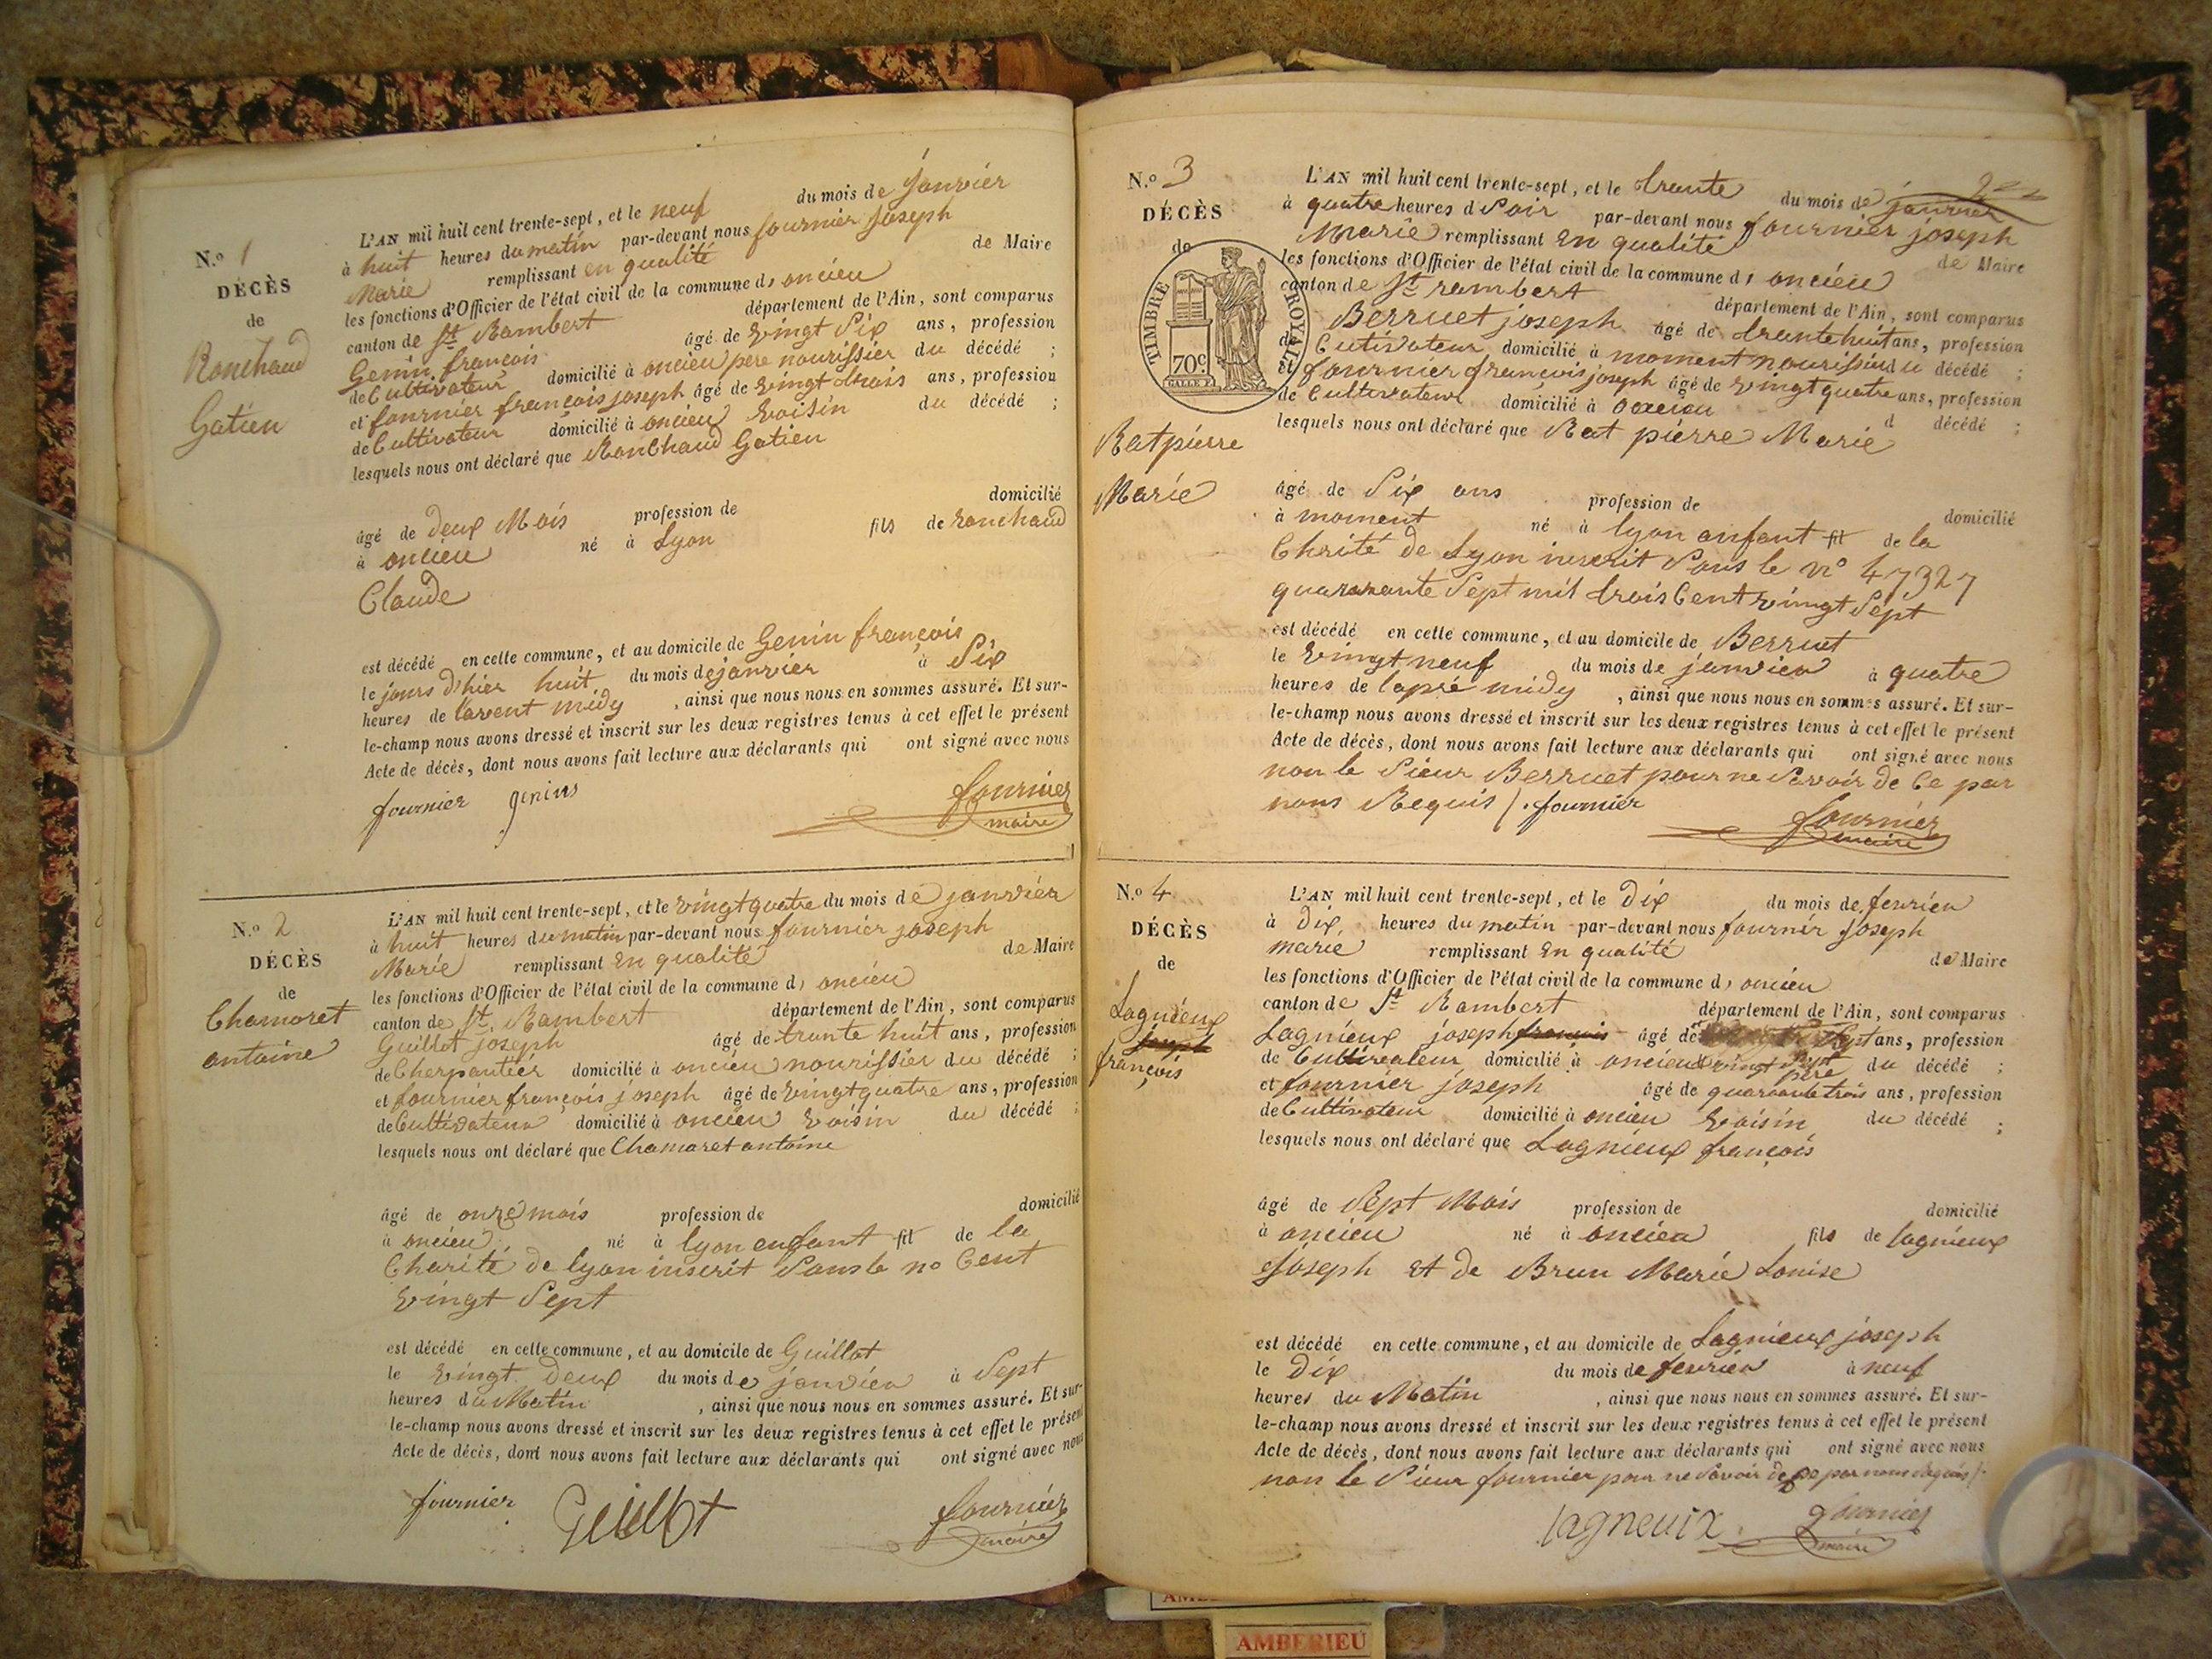 N.º 1
DÉCÈS
de
Ronchaud
Gatien
L'AN mil huit cent trente-sept, et le neuf du mois de janvier
à huit heures du matin par-devant nous fournier joseph
Marie remplissant en qualité de Maire
les fonctions d'Officier de l'état civil de la commune d, oncieu
canton de St Rambert département de l'Ain, sont comparus
Genin, françois âgé de vingt Six ans, profession
de Cultivateur domicilié à oncieu pere nourissier du décédé ;
et fournier françois joseph âgé de vingt trois ans, profession
de Cultivateur domicilié à oncieu Voisin du décédé ;
lesquels nous ont déclaré que RonChaud Gatien
âgé de deux Mois profession de domicilié
à oncieu né à Lyon fils de ronchaud
Claude
est décédé en cette commune, et au domicile de Genin françois
le jours d'hier huit du mois de janvier à Six
heures de lavent midy , ainsi que nous nous en sommes assuré. Et sur-
le-champ nous avons dressé et inscrit sur les deux registres tenus à cet effet le présent
Acte de décès, dont nous avons fait lecture aux déclarants qui ont signé avec nous
fournier genins fournier
maire
N.º 2
DÉCÈS
de
Chamaret
antoine
L'AN mil huit cent trente-sept, et le vingt quatre du mois de janvier
à huit heures du matin par-devant nous fournier joseph
Marie remplissant En qualité de Maire
les fonctions d'Officier de l'état civil de la commune d, oncieu
canton de St. Rambert département de l'Ain, sont comparus
Guillot joseph âgé de trante huit ans, profession
de Cherpantier domicilié à oncieu nourissier du décédé ;
et fournier françois joseph âgé de vingt quatre ans, profession
de Cultivateur domicilié à oncieu Voisin du décédé ;
lesquels nous ont déclaré que Chamaret antoine
âgé de onze mois profession de domicilié
à oncieu né à lyon enfant fil de la
Charité de lyon inscrit Sous le no Cent
vingt Sept
est décédé en cette commune, et au domicile de Guillot
le vingt deux du mois de janvier à Sept
heures du Matin , ainsi que nous nous en sommes assuré. Et sur-
le-champ nous avons dressé et inscrit sur les deux registres tenus à cet effet le présent
Acte de décès, dont nous avons fait lecture aux déclarants qui ont signé avec nous
fournier Guillot fournier
maire
N.º 3
DÉCÈS
de
TIMBRE ROYAL
70c.
Rat pierre
Marie
L'AN mil huit cent trente-sept, et le trante du mois de janvier
à quatre heures d Soir par-devant nous fournier joseph
Marie remplissant En qualité de Maire
les fonctions d'Officier de l'état civil de la commune d, oncieu
canton de St rambert département de l'Ain, sont comparus
Berruet joseph âgé de trante huit ans, profession
de Cultivateur domicilié à moment nourissier du décédé ;
et fournier françois joseph âgé de vingt quatre ans, profession
de Cultivateur domicilié à oncieu d décédé ;
lesquels nous ont déclaré que Rat pierre Marie
âgé de Six ans profession de domicilié
à moment né à lyon anfant fil de la
Chrité de Lyon inscrit Sous le no 47327
quararante Sept mil trois Cent vingt Sept
est décédé en cette commune, et au domicile de Berruet
le vingt neuf du mois de janvier à quatre
heures de lapré midy , ainsi que nous nous en sommes assuré. Et sur-
le-champ nous avons dressé et inscrit sur les deux registres tenus à cet effet le présent
Acte de décès, dont nous avons fait lecture aux déclarants qui ont signé avec nous
non le Sieur Berruet pour ne Savoir de Ce par
nous Requis /. fournier fournier
maire
N.º 4
DÉCÈS
de
Lagnieux
joseph
françois
L'AN mil huit cent trente-sept, et le Dix du mois de fevrier
à Dix heures du matin par-devant nous fournir joseph
marie remplissant En qualité de Maire
les fonctions d'Officier de l'état civil de la commune d, oncieu
canton de St Rambert département de l'Ain, sont comparus
Lagnieux joseph françois âgé de Sept ans, profession
de Cultivateur domicilié à oncieu vingt Sept père du décédé ;
et fournier joseph âgé de quarante trois ans, profession
de Cultivateur domicilié à oncieu Voisin du décédé ;
lesquels nous ont déclaré que Lagnieux françois
âgé de Sept Mois profession de domicilié
à oncieu né à oncieu fils de lagnieux
Joseph et de Brun Marie Louise
est décédé en cette commune, et au domicile de Lagnieux joseph
le Dix du mois de fevrier à neuf
heures du Matin , ainsi que nous nous en sommes assuré. Et sur-
le-champ nous avons dressé et inscrit sur les deux registres tenus à cet effet le présent
Acte de décès, dont nous avons fait lecture aux déclarants qui ont signé avec nous
non le Sieur fournier pour ne Savoir de Ce par nous Requis /.
lagneuix fournier
maire
AMBERIEU